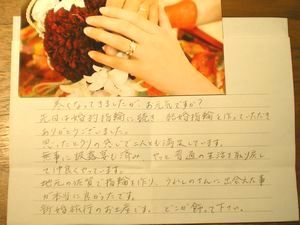 寒くなってきましたが、お元気ですか？
先日は婚約指輪に続き、結婚指輪を作っていただき
ありがとうございました。
思ったとうりの感じで二人とも満足しています。
無事に披露宴も済み、やっと普通の生活を取り戻し
て仲良くやっています。
地元の佐賀で指輪を作り、うれしのさんに出会えた事
が本当に良かったです。
新婚旅行のお土産です。どこか飾って下さい。